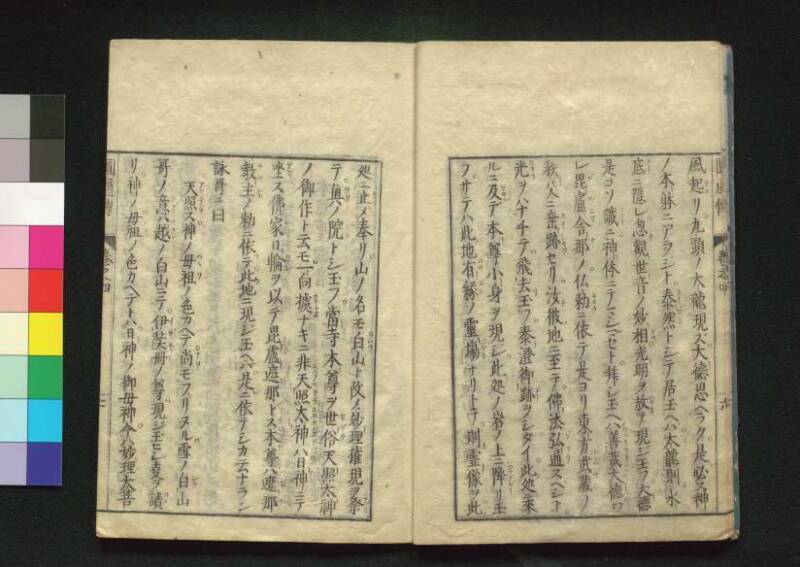 風起リ九頭ノ大龍現ス大徳思ヘラク是必ス神
ノ本躰ニアラシト泰然トシテ居玉ヘハ大龍則水
底ニ隠レ忽観世音ノ妙相光明ヲ放テ現シ玉フ大徳
是コソ誠ニ神体ニテマシマセト拝シ玉ヘハ善哉大徳ワ
レ毘盧舎那ノ仏勅ニ依テ是ヨリ東方武蔵ノ
秩父ニ垂跡セリ汝彼地ニ至テ佛法弘通スヘシト
光ヲハナチテ飛去玉フ泰澄御跡ヲシタイ此処ニ来
ルニ及テ本尊小身ヲ現シ此処ノ岩ノ上ニ降リ玉
フサテハ此地有縁ノ霊場ナリトテ則霊像ヲ此
処ニ止メ奉リ山ノ名モ白山ト改メ妙理権現ヲ祭
テ奥ノ院トシ玉フ當寺本尊ヲ世俗天照太神
ノ御作ト云モ一向拠ナキニ非天照太神ハ日神ニテ
坐ス佛家日輪ヲ以テ毘盧遮那トス本尊ハ遮那
教主ノ勅ニ依テ此地ニ現シ玉ヘハ是ニ依テシカ云ナラン
詠哥ニ曰
天照ス神ノ母祖ノ色カヘテ尚モフリヌル雪ノ白山
哥ノ意ハ越ノ白山ニテ伊弉冊ノ尊現シ玉ヒシ
リ神ノ母祖ノ色カヘテトハ日神ノ御母神今妙理大菩